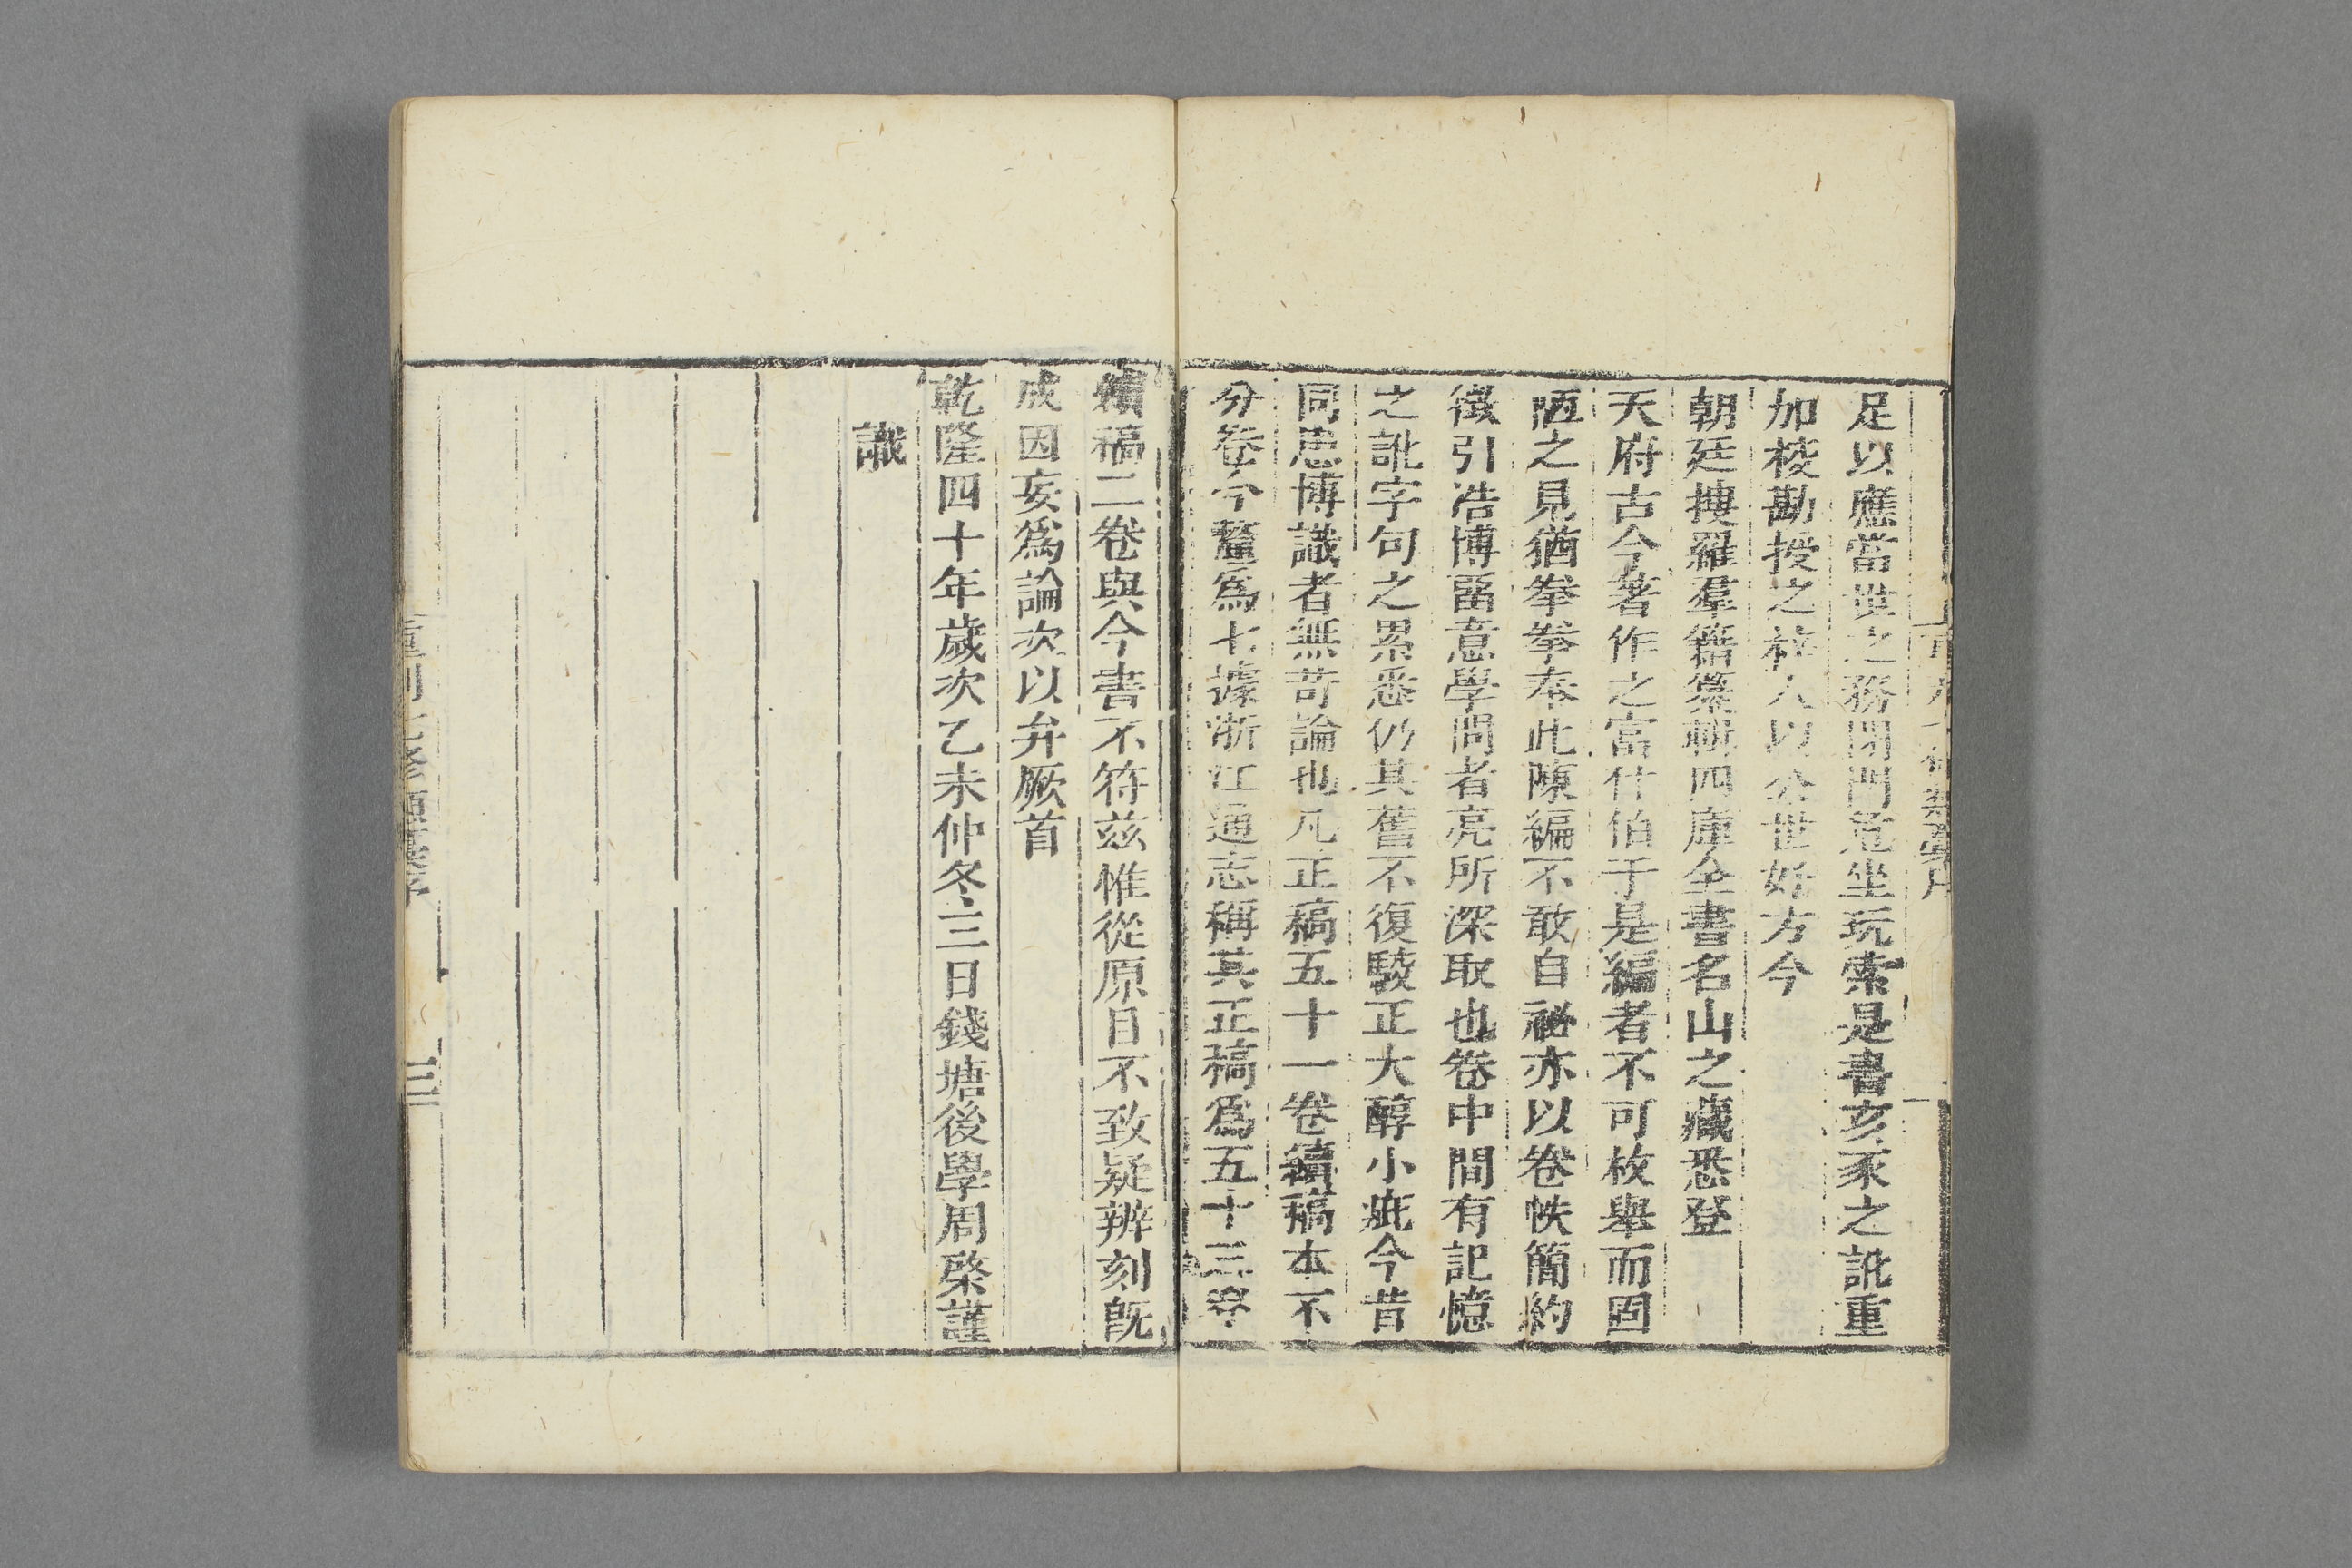 足以應當世之務閉門危坐玩索是書亥豕之訛重
加校勘授之梓人以公世好方今
朝廷搜羅羣籍纂輯四庫全書名山之藏悉登
天府古今著作之富什伯于是編者不可枚舉而固
陋之見猶拳拳奉此陳編不敢自祕亦以卷帙簡約
徵引浩博畱意學問者亮所深取也卷中間有記憶
之訛字句之累悉仍其舊不復駮正大醇小疵今昔
同患博識者無苛論也凡正稿五十一卷續稿本不
分卷今釐爲七據浙江通志稱其正稿爲五十三卷
續稿二卷與今書不符茲惟從原目不致疑辨刻旣
成因妄爲論次以弁厥首
乾隆四十年歲次乙未仲冬三日錢塘後學周棨謹
識
三